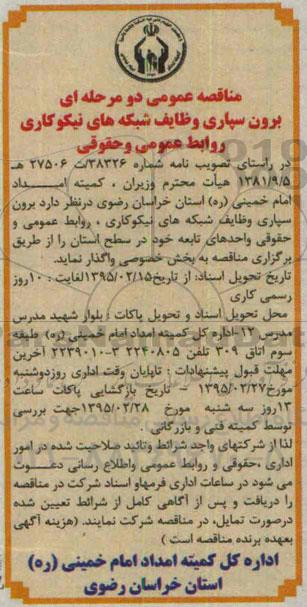 مناقصه عمومی دو مرحله ای
برون سپاری وظایف شبکه های نیکوکاری
روابط عمومی وحقوقی
در راستای تصویب نامه شماره ۳۸۳۲۶/ت ۲۷۵۰۶ هـ
۱۳۸۱/۹/۵ هیأت محترم وزیران ، کمیته امـــداد
امام خمینی (ره) استان خراسان رضوی درنظر دارد برون
سپاری وظایف شبکه های نیکوکاری ، روابط عمومی و
حقوقی واحدهای تابعه خود در سطح استان را از طریق
برگزاری مناقصه به بخش خصوصی واگذار نماید.
تاریخ تحویل اسناد: از تاریخ۱۳۹۵/۰۲/۱۵لغایت : ۱۰روز
رسمی کاری
محل تحویل اسناد و تحویل پاکات : بلوار شهید مدرس
مدرس ۱۲-اداره کل کمیته امداد امام خمینی (ره) طبقه
سوم اتاق ۳۰۹ تلفن ۲۲۴۰۸۰۵ ۳-۲۲۳۹۰۱۰ آخرین
مهلت قبول پیشنهادات : تاپایان وقت اداری روزدوشنبه
مورخ۱۳۹۵/۰۲/۲۷ – تاریخ بازگشایی پاکات ساعت
۱۳روز سه شنبه مورخ ۱۳۹۵/۰۲/۲۸جهت بررسی
توسط کمیته فنی و بازرگانی
لذا از شرکتهای واجد شرائط وتائید صلاحیت شده در امور
اداری ،حقوقی و روابط عمومی واطلاع رسانی دعـــوت
می شود در ساعات اداری فرمهاو اسناد شرکت در مناقصه
را دریافت و پس از آگاهی کامل از شرائط تعیین شده
درصورت تمایل، در مناقصه شرکت نمایند. (هزینه آگهی
بعهده برنده مناقصه است )
اداره کل کمیته امداد امام خمینی (ره)
استان خراسان رضوی